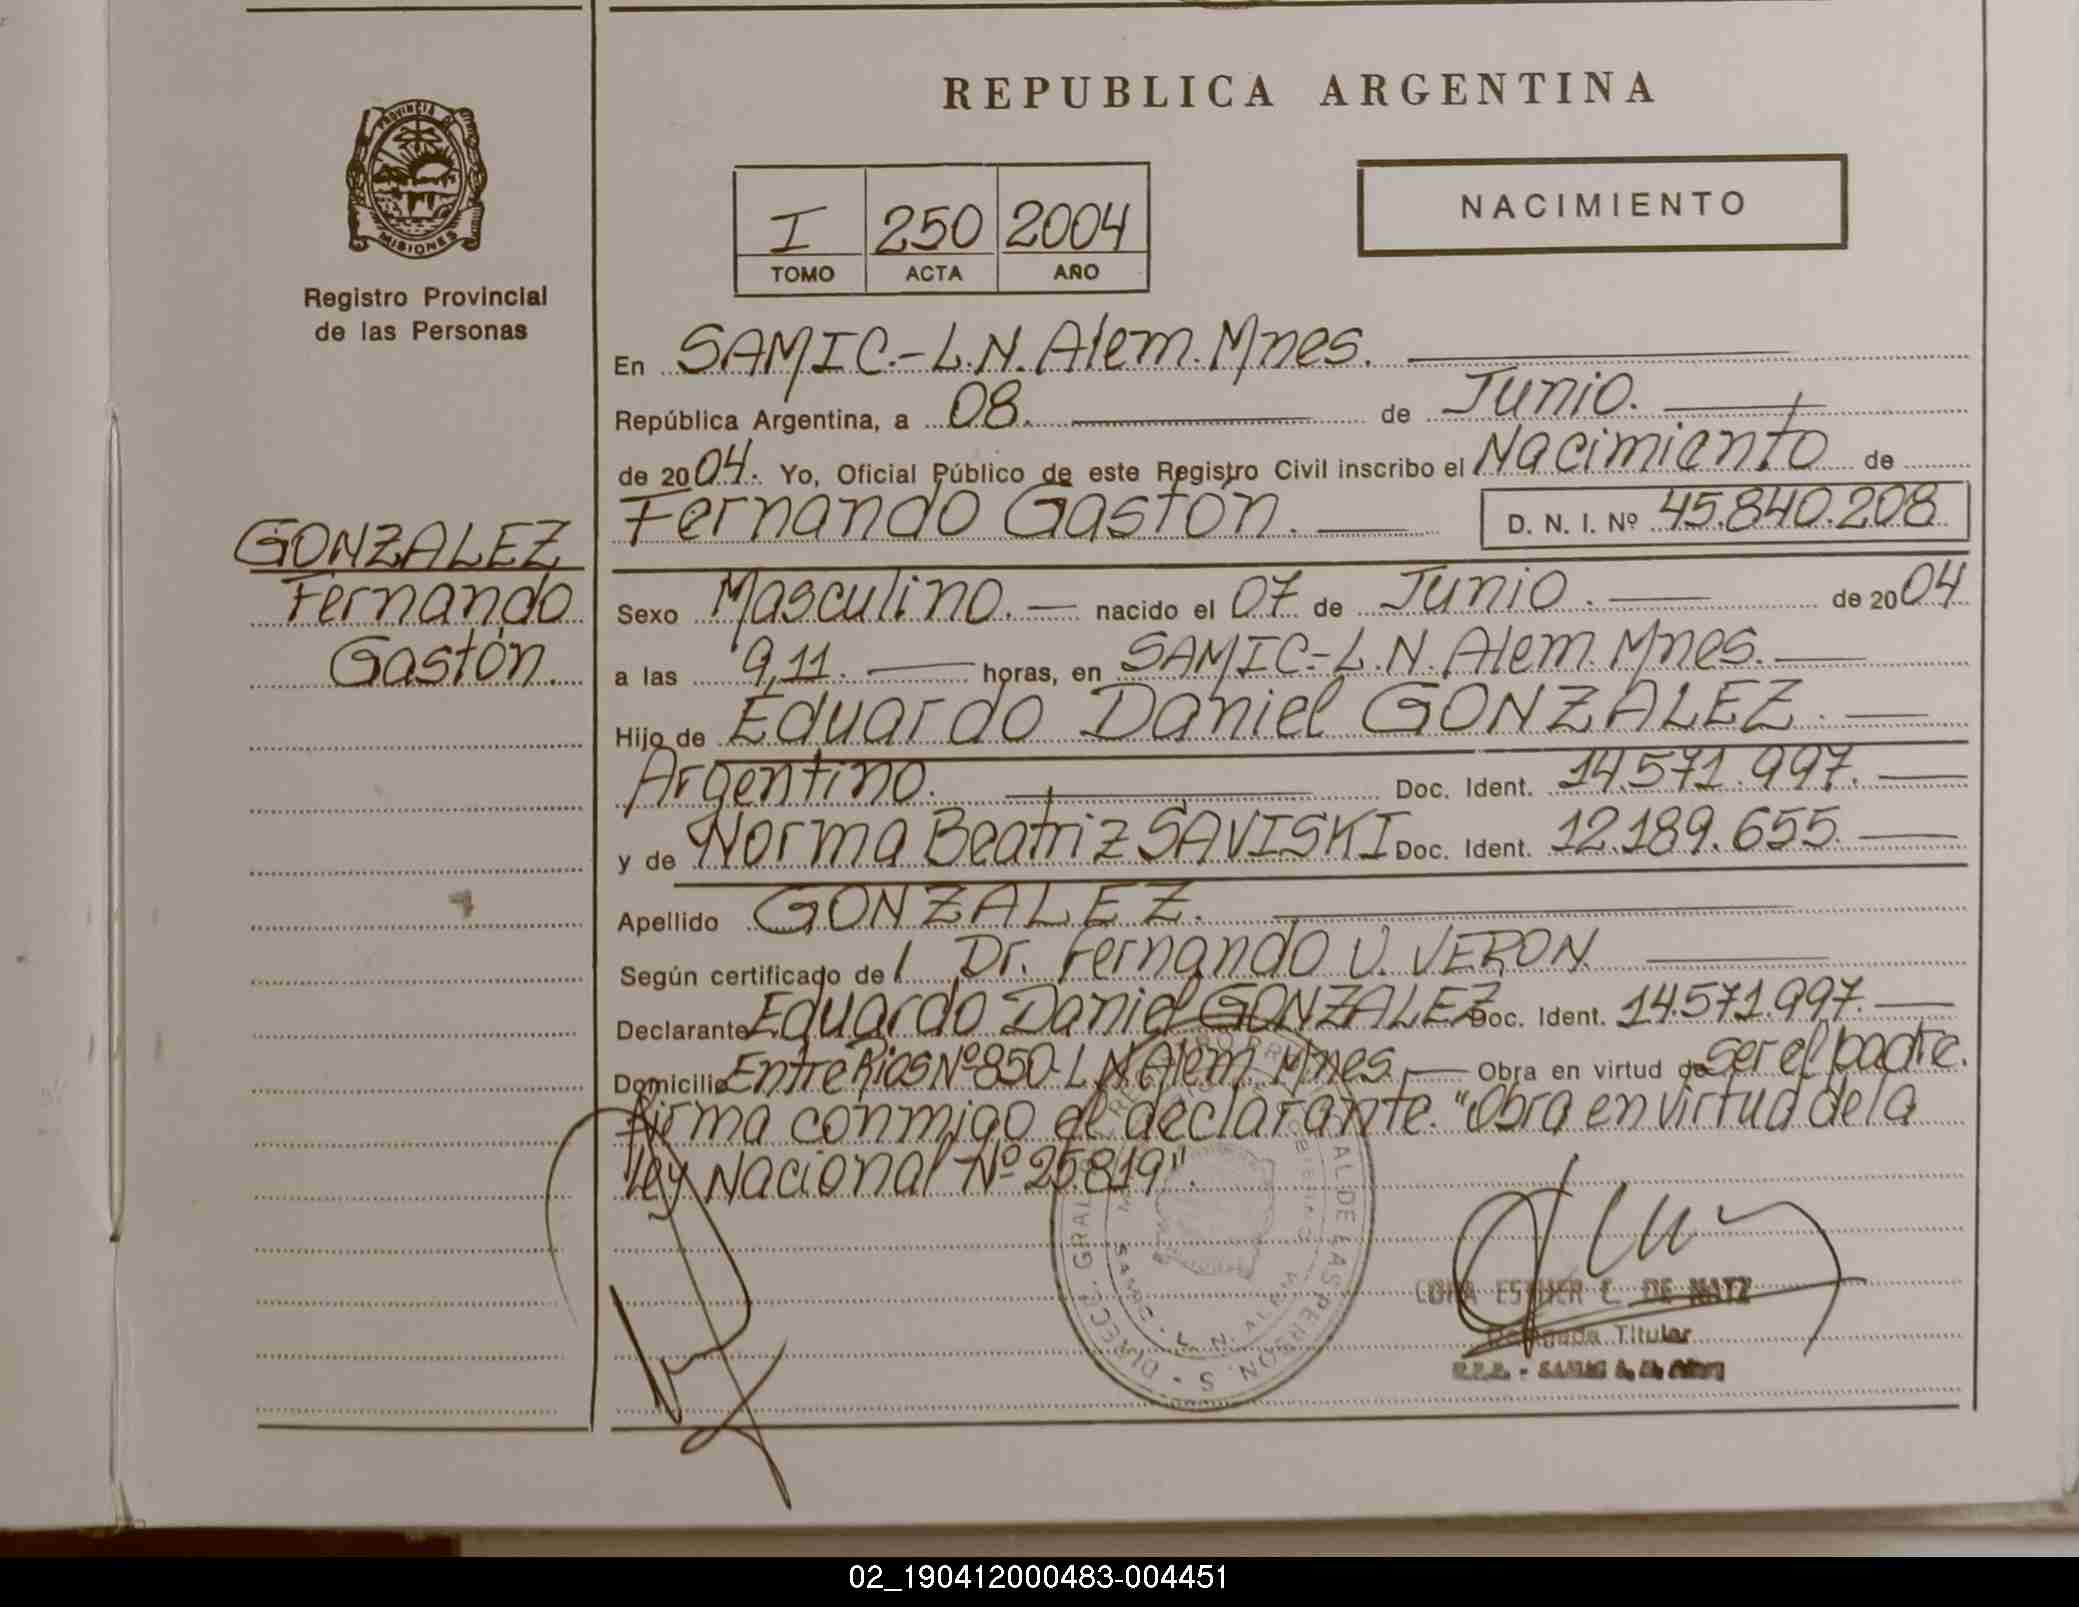 REPUBLICA ARGENTINA
PROVINCIA DE
MISIONES
Registro Provincial
de las Personas
I 250 2004
TOMO ACTA AÑO
NACIMIENTO
En SAMIC.-L.N.Alem.Mnes.
República Argentina, a 08. de Junio.
de 2004. Yo, Oficial Público de este Registro Civil inscribo el Nacimiento de
Fernando Gastón. D. N. I. Nº 45.840.208
GONZALEZ
Fernando
Gastón.
Sexo Masculino. nacido el 07 de Junio. de 2004
a las 9,11. horas, en SAMIC-L.N.Alem.Mnes.
Hijo de Eduardo Daniel GONZALEZ.
Argentino. Doc. Ident. 14.571.997.
y de Norma Beatriz SAVISKI Doc. Ident. 12.189.655.
Apellido GONZALEZ.
Según certificado de l Dr. Fernando U. VERON.
Declarante Eduardo Daniel GONZALEZ Doc. Ident. 14.571.997.
Domicilio Entre Rios Nº850-L.N.Alem.Mnes. Obra en virtud de ser el padre.
Firma conmigo el declarante. "Obra en virtud de la
Ley Nacional Nº 25.819".
ESTHER C. DE MATZ
Delegada Titular
02_190412000483-004451